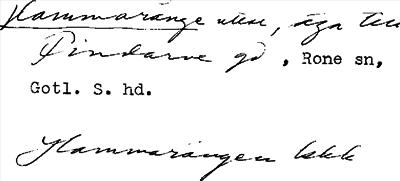 Hammaränge utse, äga till
Pindarve gd, Rone sn,
Gotl. S. hd.
Hammarängen